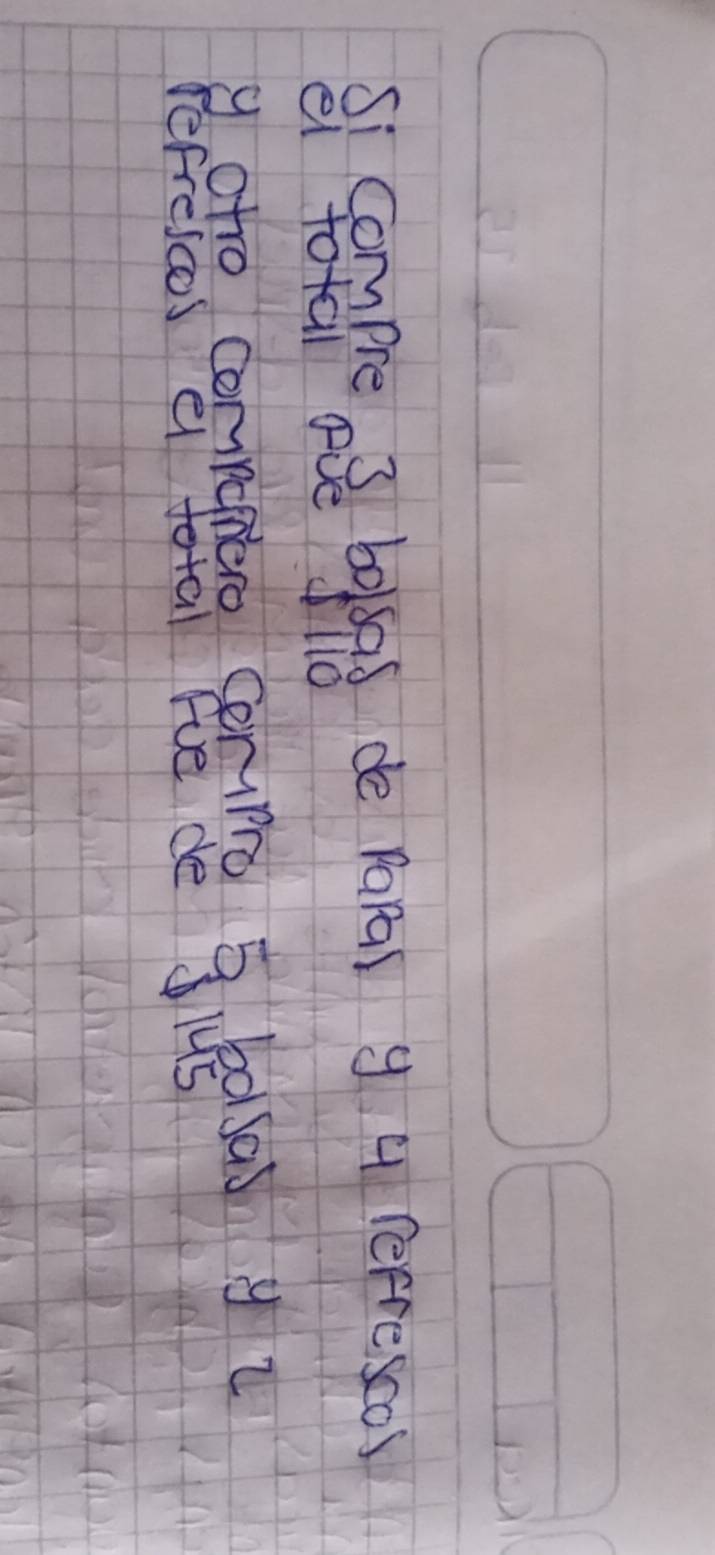 Si compre 3 bolsas de Papas y 4 refrescos
el total fue $ 110
y otro compañero compro 5 bolsas y 2
refrescos el total fue de $ 145